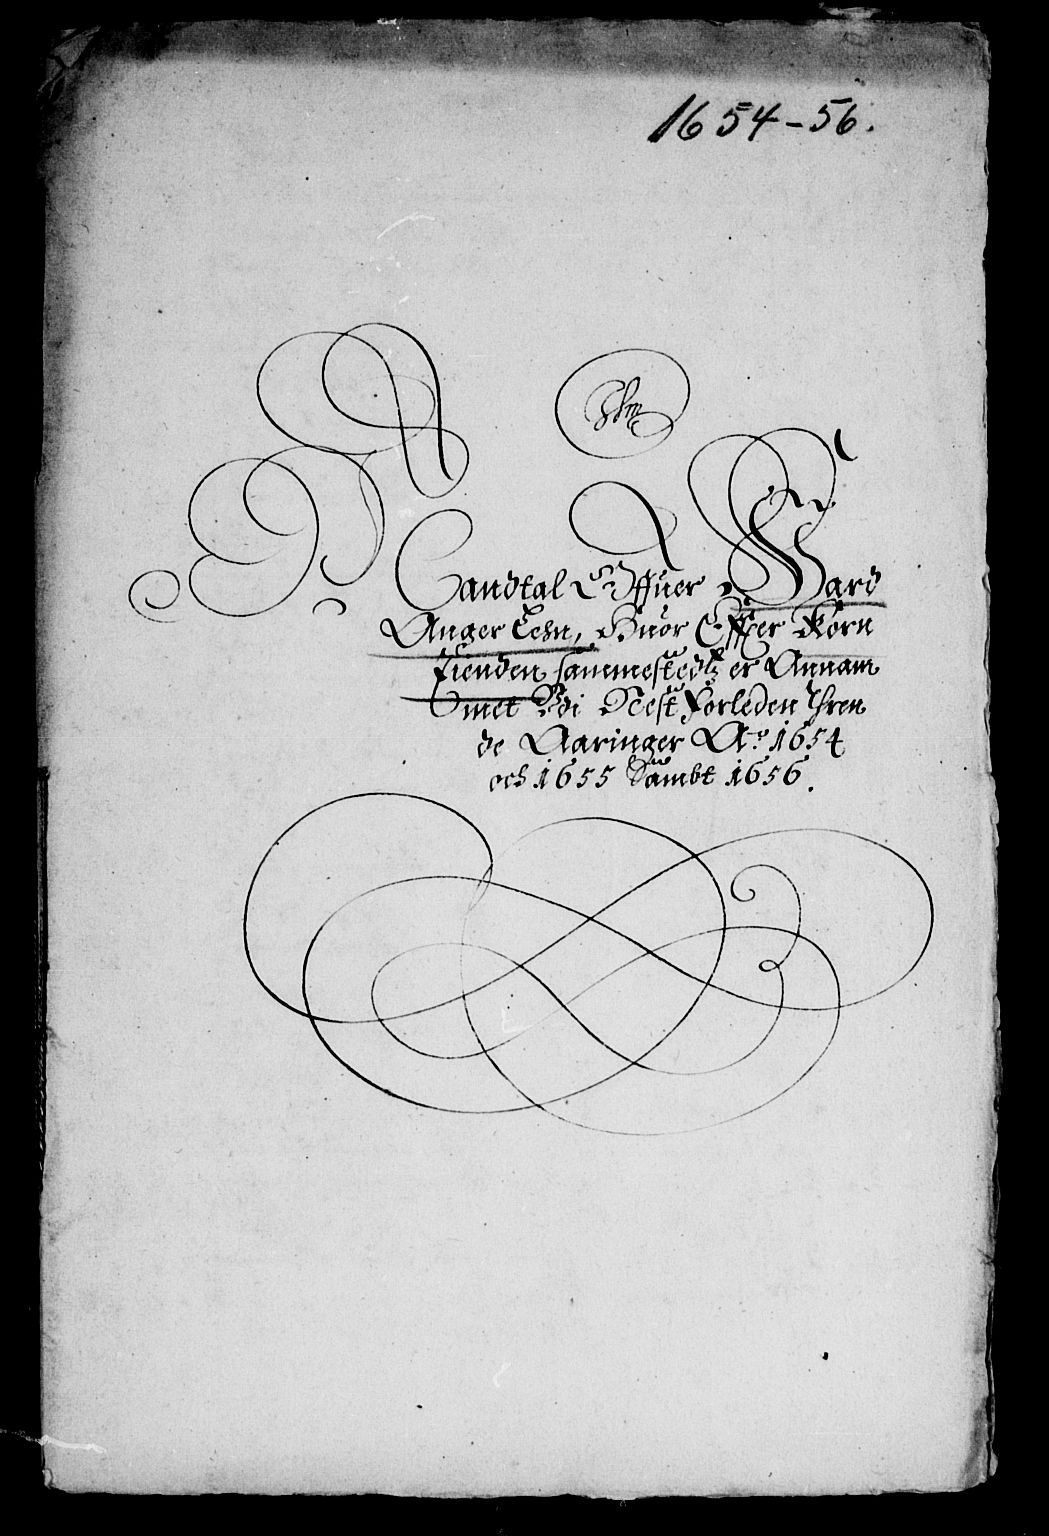 1654-56.
Mandtal Offuer Ward
Anger Lehn, Huor Effter Korn
Tienden sammestedtz er Annam
met Vdi Nest Forleden Thren
de Aaringer Aº. 1654
och 1655 Sambt 1656.